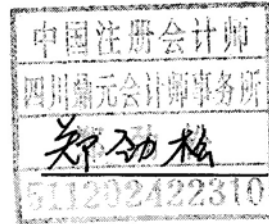 中国注册会计师
四川鼎元会计师事务所
郑劲松
511202422310